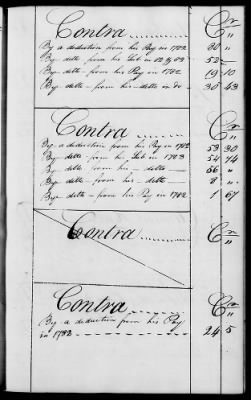 Contra Cr
By a deduction from his Pay in 1782 30 "
By detto from his Sub in 82 & 83 52
By detto from his Pay in 1782 19 10
By detto from his detto in do 30 43
Contra Cr
By a deduction from his Pay in 1782 53 30
By detto from his Sub in 1783 54 74
By detto from his detto 66 "
By detto from his detto 8 "
By detto from his Pay in 1782 1 67
Contra Cr
Contra Cr
By a deduction from his Pay
in 1782 24 5